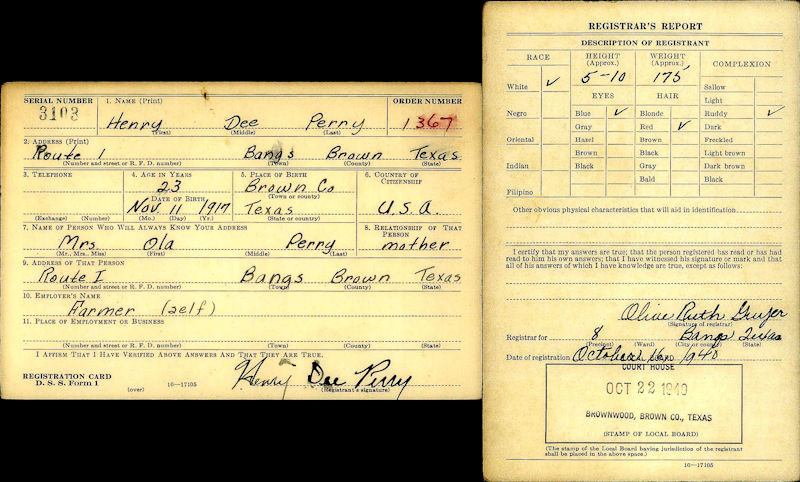 SERIAL NUMBER 1. NAME (Print) ORDER NUMBER
3103 Henry Dee Perry 1367
(First) (Middle) (Last)
2. ADDRESS (Print)
Route 1 Bangs Brown Texas
(Number and street or R. F. D. number) (Town) (County) (State)
3. TELEPHONE 4. AGE IN YEARS 5. PLACE OF BIRTH 6. COUNTRY OF CITIZENSHIP
23 Brown Co
DATE OF BIRTH (Town or county)
Nov. 11 1917 Texas U.S.A.
(Exchange) (Number) (Mo.) (Day) (Yr.) (State or country)
7. NAME OF PERSON WHO WILL ALWAYS KNOW YOUR ADDRESS 8. RELATIONSHIP OF THAT PERSON
Mrs. Ola Perry mother
(Mr., Mrs., Miss) (First) (Middle) (Last)
9. ADDRESS OF THAT PERSON
Route I Bangs Brown Texas
(Number and street or R. F. D. number) (Town) (County) (State)
10. EMPLOYER'S NAME
Farmer (self)
11. PLACE OF EMPLOYMENT OR BUSINESS
(Number and street or R. F. D. number) (Town) (County) (State)
I AFFIRM THAT I HAVE VERIFIED ABOVE ANSWERS AND THAT THEY ARE TRUE.
REGISTRATION CARD
D. S. S. Form 1 (over) 16—17105 Henry Dee Perry
(Registrant's signature)
REGISTRAR'S REPORT
DESCRIPTION OF REGISTRANT
RACE HEIGHT (Approx.) WEIGHT (Approx.) COMPLEXION
White ✓ 5-10 175 Sallow
EYES HAIR Light
Negro Blue ✓ Blonde Ruddy ✓
Gray Red ✓ Dark
Oriental Hazel Brown Freckled
Brown Black Light brown
Indian Black Gray Dark brown
Bald Black
Filipino
Other obvious physical characteristics that will aid in identification
I certify that my answers are true; that the person registered has read or has had
read to him his own answers; that I have witnessed his signature or mark and that
all of his answers of which I have knowledge are true, except as follows:
Olive Ruth
(Signature of registrar)
Registrar for 8 Bangs Texas
(Precinct) (Ward) (City or county) (State)
Date of registration October 16 1940
COURT HOUSE
OCT 22 1940
BROWNWOOD, BROWN CO., TEXAS
(STAMP OF LOCAL BOARD)
(The stamp of the Local Board having jurisdiction of the registrant
shall be placed in the above space.)
16—17105